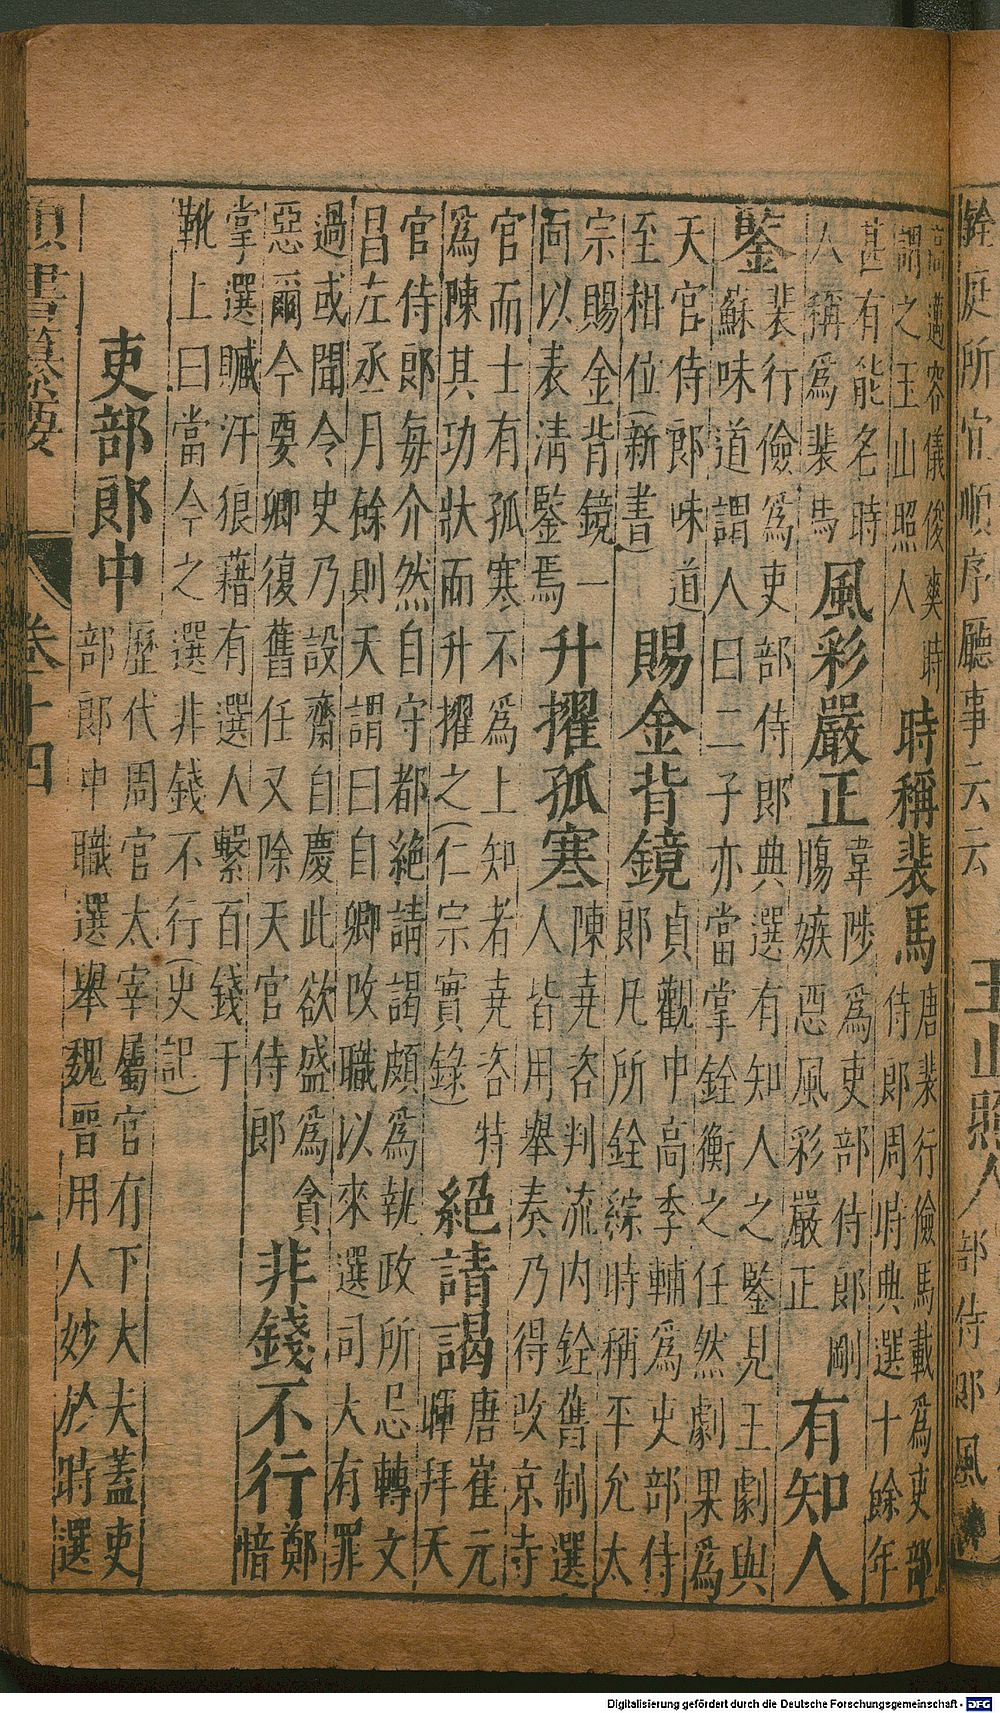 銓庭所宜順序聽事云云 玉山照人 部侍郎風
高邁容儀俊爽時
謂之玉山照人
時稱裴馬
唐裴行儉馬載爲吏部
侍郎周時典選十餘年
甚有能名時
人稱爲裴馬
風彩嚴正
韋陟爲吏部侍郎剛
腸嫉惡風彩嚴正
有知人
鑒
裴行儉爲吏部侍郎典選有知人之鑒見王劇與
蘇味道謂人曰二子亦當掌銓衡之任然劇果爲
天官侍郎味道
至相位(新書)
賜金背鏡
貞觀中高季輔爲吏部侍
郎凡所銓綜時稱平允太
宗賜金背鏡一
面以表淸鑒焉
升擢孤寒
陳堯咨判流内銓舊制選
人皆用舉奏乃得改京寺
官而士有孤寒不爲上知者堯咨特
爲陳其功狀而升擢之(仁宗實錄)
絕請謁
唐崔元
暐拜天
官侍郎每介然自守都絕請謁頗爲執政所忌轉文
昌左丞月餘則天謂曰自卿改職以來選司大有罪
過或聞令史乃設齋自慶此欲盛爲貪
惡爾今要卿復舊任又除天官侍郎
非錢不行
鄭
愔
掌選贓汙狼藉有選人繫百錢于
靴上曰當今之選非錢不行(史記)
吏部郎中
歷代周官太宰屬官有下大夫蓋吏
部郎中職選舉魏晉用人妙於時選
類書纂要 卷十四
Digitalisierung gefördert durch die Deutsche Forschungsgemeinschaft - DFG